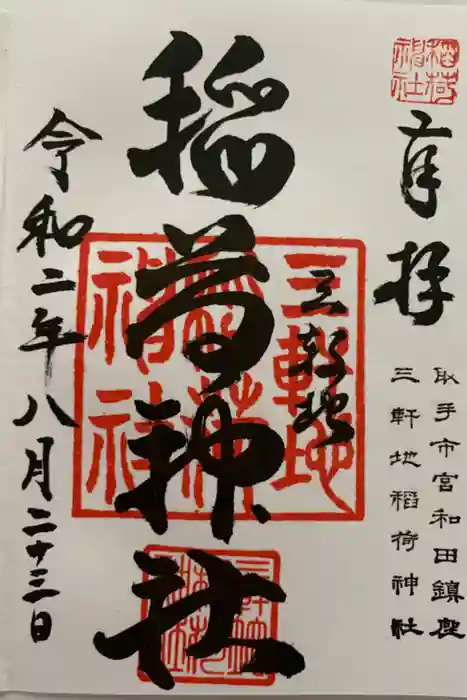 稲荷神社
奉拝
取手市宮和田鎮座
三軒地稲荷神社
三軒地
稲荷神社
三軒地
稲荷
神社
令和二年八月二十三日